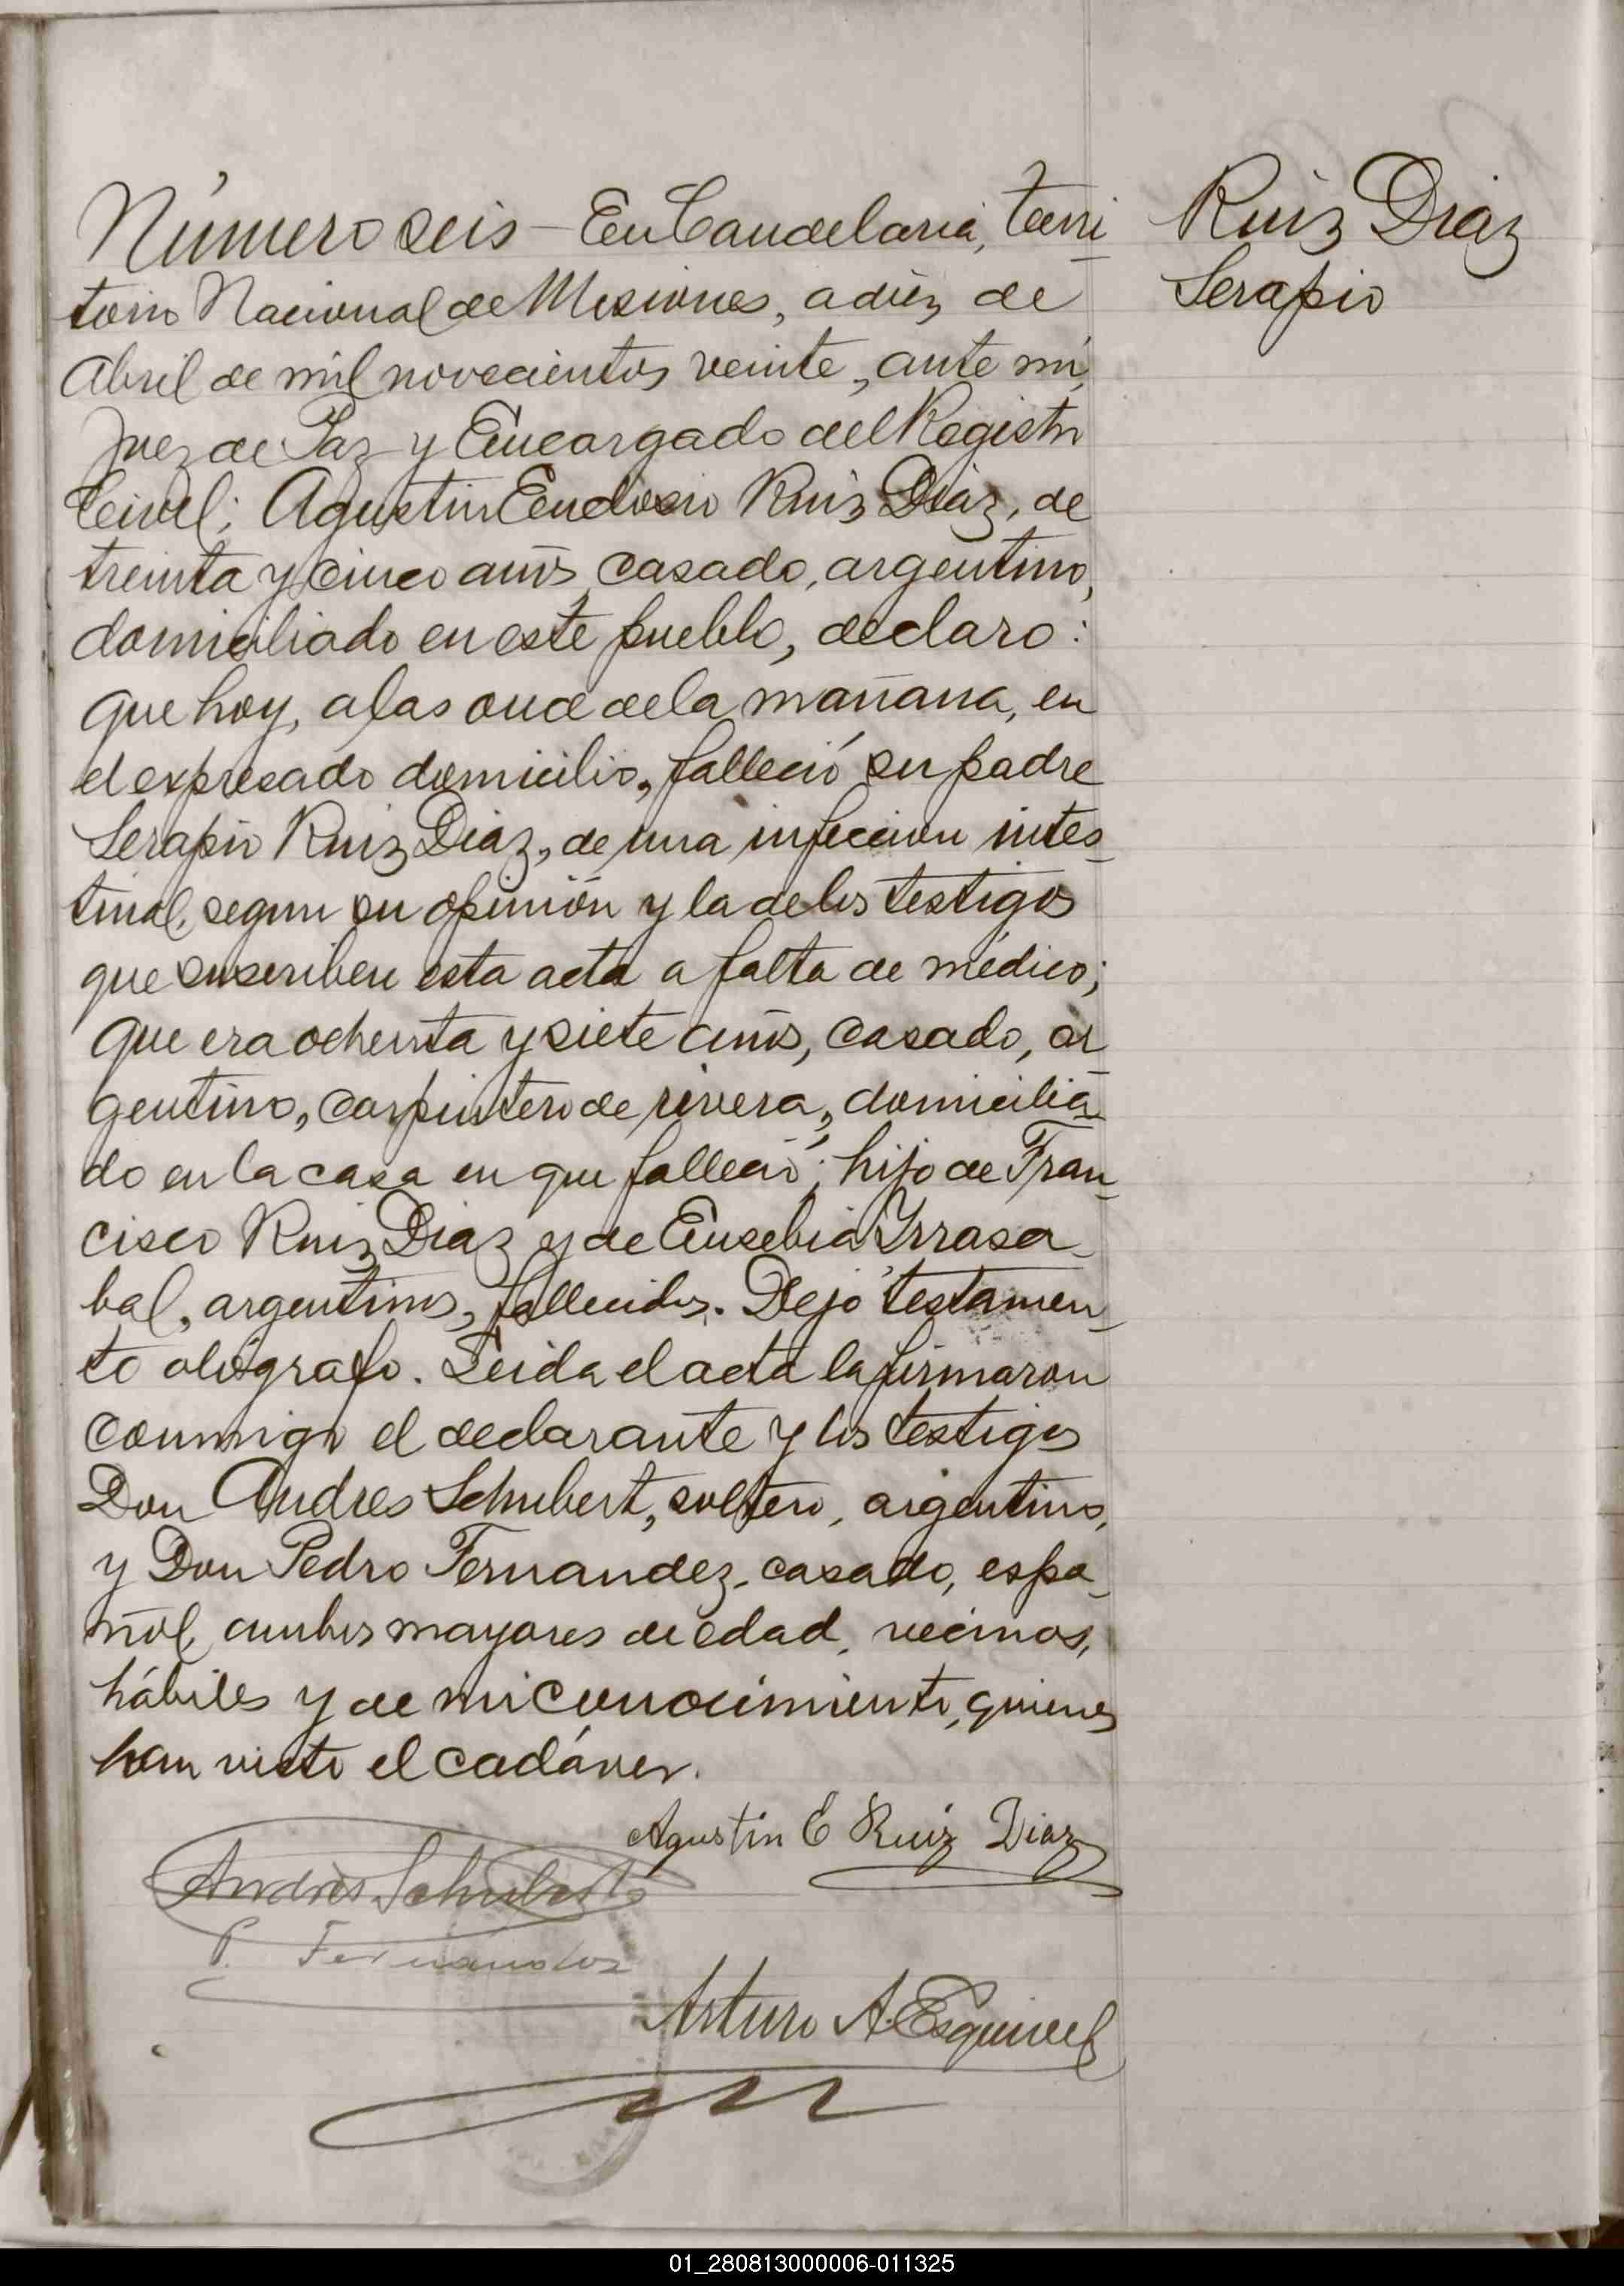 Número seis - En Candelaria, terri
torio Nacional de Misiones, a diez de
Abril de mil novecientos veinte, ante mi,
Juez de Paz y Encargado del Registro
Civil; Agustin Eudosio Ruiz Diaz, de
treinta y cinco años, casado, argentino,
domiciliado en este pueblo, declaro:
que hoy, a las once de la mañana, en
el expresado domicilio, falleció su padre
Serapio Ruiz Diaz, de una infeccion intes_
tinal, segun su opinión y la de los testigos
que suscriben esta acta a falta de médico;
que era ochenta y siete años, casado, ar_
gentino, carpintero de rivera, domicilia_
do en la casa en que falleció; hijo de Fran_
cisco Ruiz Diaz y de Eusebia Yrrasa_
bal, argentinos, fallecidos. Dejó testamen_
to ológrafo. Leida el acta la firmaron
conmigo el declarante y los testigos
Don Andres Schubert, soltero, argentino,
y Don Pedro Fernandez, casado, espa_
ñol, ambos mayores de edad, vecinos,
hábiles y de mi conocimiento, quienes
han visto el cadáver.
Agustin E Ruiz Diaz
Andrés Schubert
P. Fernandez
Arturo A. Esquivel
Ruiz Diaz
Serapio
01_280813000006-011325